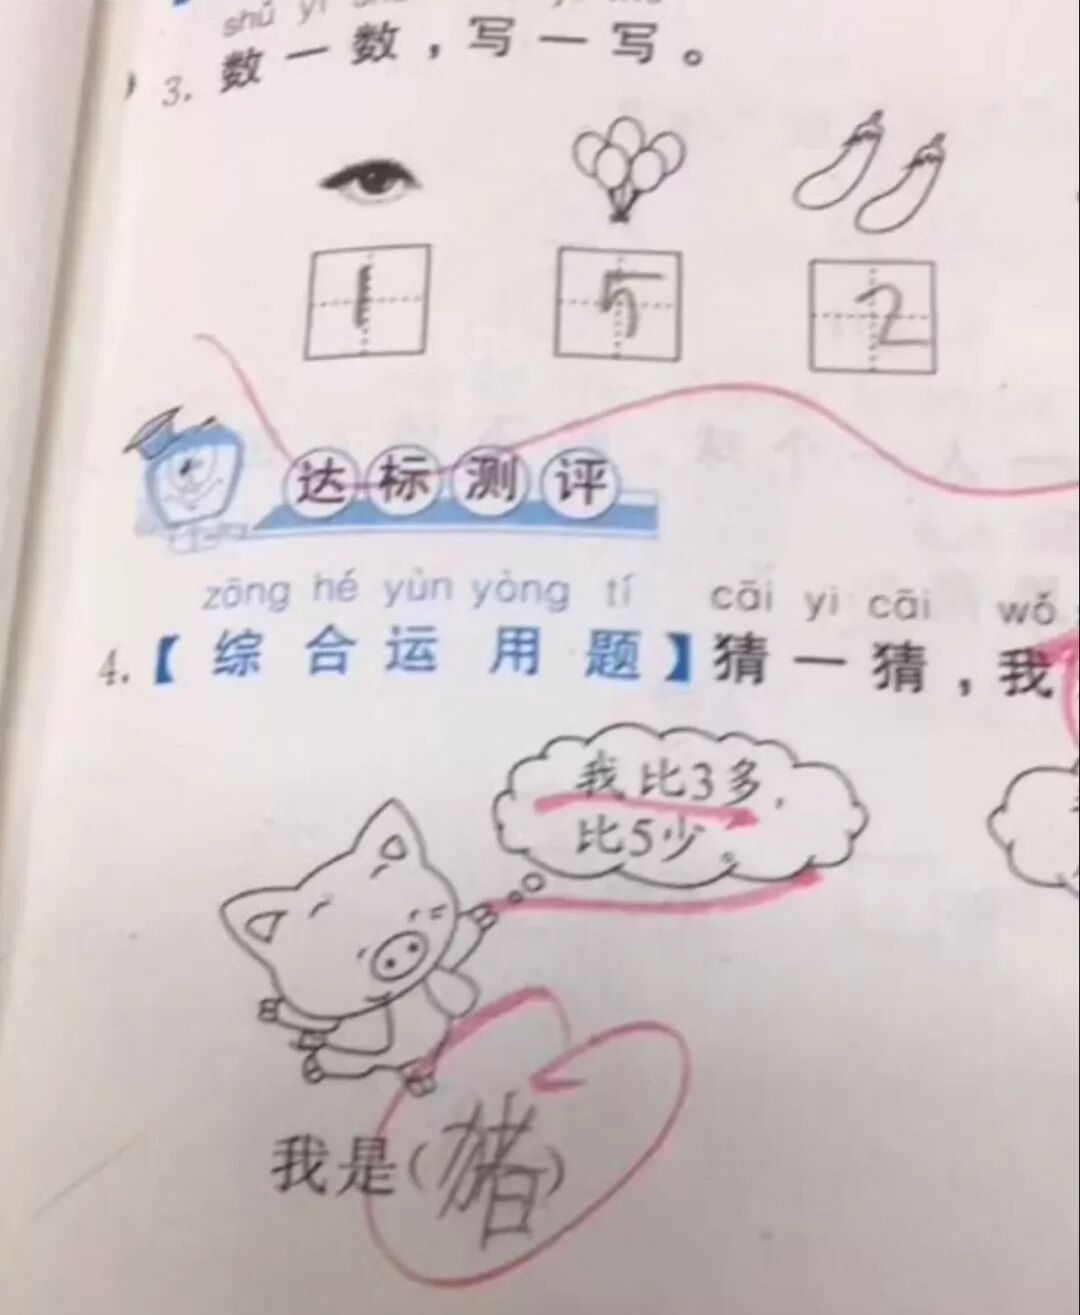 shǔ yī
3. 数一数，写一写。
1 5 2
达标测评
zōng hé yùn yòng tí cāi yi cāi wǒ
4.【综合运用题】猜一猜，我
我比3多，
比5少。
我是(猪)